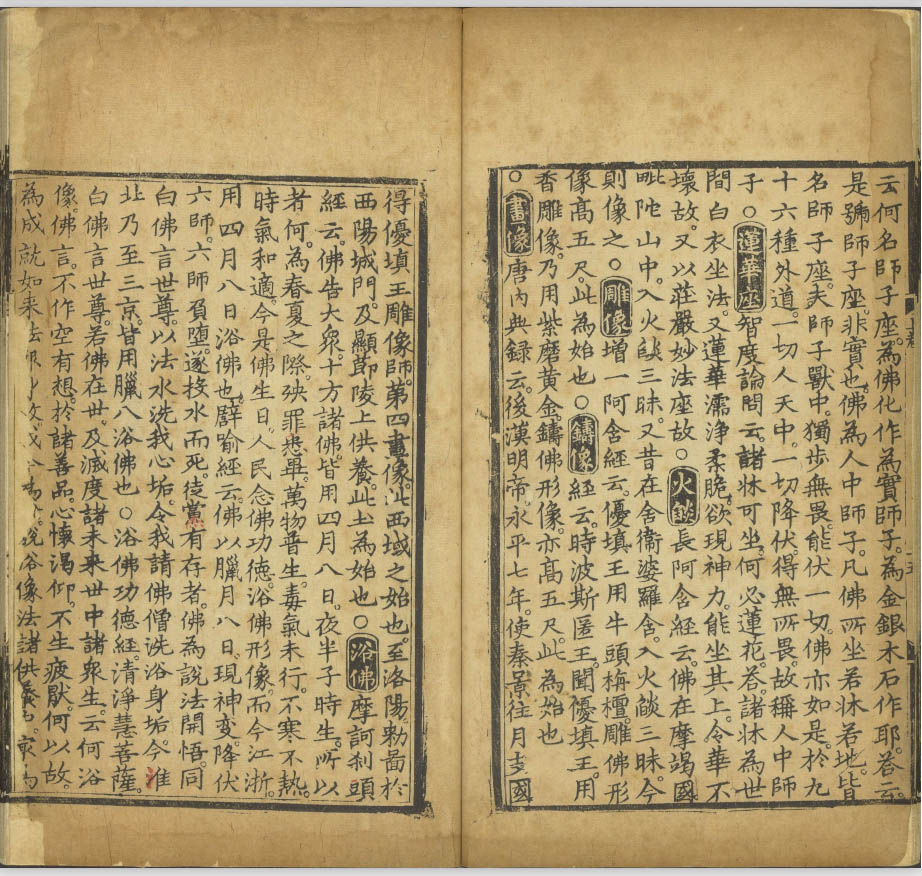 云何名師子座。為佛化作為實師子。為金銀木石作耶。荅云。
是號師子座。非實也。佛為人中師子。凡佛所坐若牀若地。皆
名師子座。夫師子獸中。獨步無畏。能伏一切。佛亦如是。於九
十六種外道。一切人天中。一切降伏。得無所畏。故稱人中師
子。○蓮華座 智度論問云。諸牀可坐。何必蓮花。荅。諸牀為世
間白衣坐法。又蓮華濡淨柔脆。欲現神力。能坐其上。令華不
壞故。又以莊嚴妙法座故○火𦦨 長阿含經云。佛在摩竭國
毗陀山中。入火𦦨三昧。又昔在舍衞婆羅舍。入火𦦨三昧。今
則像之○雕像 增一阿含經云。優填王用牛頭栴檀。雕佛形
像高五尺。此為始也○鑄像 經云。時波斯匿王。聞優填王。用
香雕像。乃用紫磨黃金。鑄佛形像。亦高五尺。此為始也
○畫像 唐內典録云。後漢明帝。永平七年。使秦景往月支國
得優填王雕像師。第四畫像。此西域之始也。至洛陽。勑畵於
西陽城門。及顯節陵上供養。此土為始也○浴佛 摩訶刹頭
經云。佛告大衆。十方諸佛。皆用四月八日。夜半子時生。所以
者何。為春夏之際。殃罪悉畢。萬物普生。毒氣未行。不寒不熱。
時氣和適。今是佛生日。人民念佛功德。浴佛形像。而今江浙。
用四月八日浴佛也。譬喻經云。佛以臘月八日。現神變降伏
六師。六師負墮。遂投水而死。徒黨有存者。佛為說法開悟。同
白佛言世尊。以法水洗我心垢。令我請佛僧洗浴身垢。今淮
北乃至三京。皆用臘八浴佛也○浴佛功德經。清淨慧菩薩。
白佛言世尊。若佛在世。及滅度諸未来世中諸衆生。云何浴
像。佛言。不作空有想。於諸善品。心懷渴仰。不生疲厭。何以故。
為成就如来法 浴像法諸供養